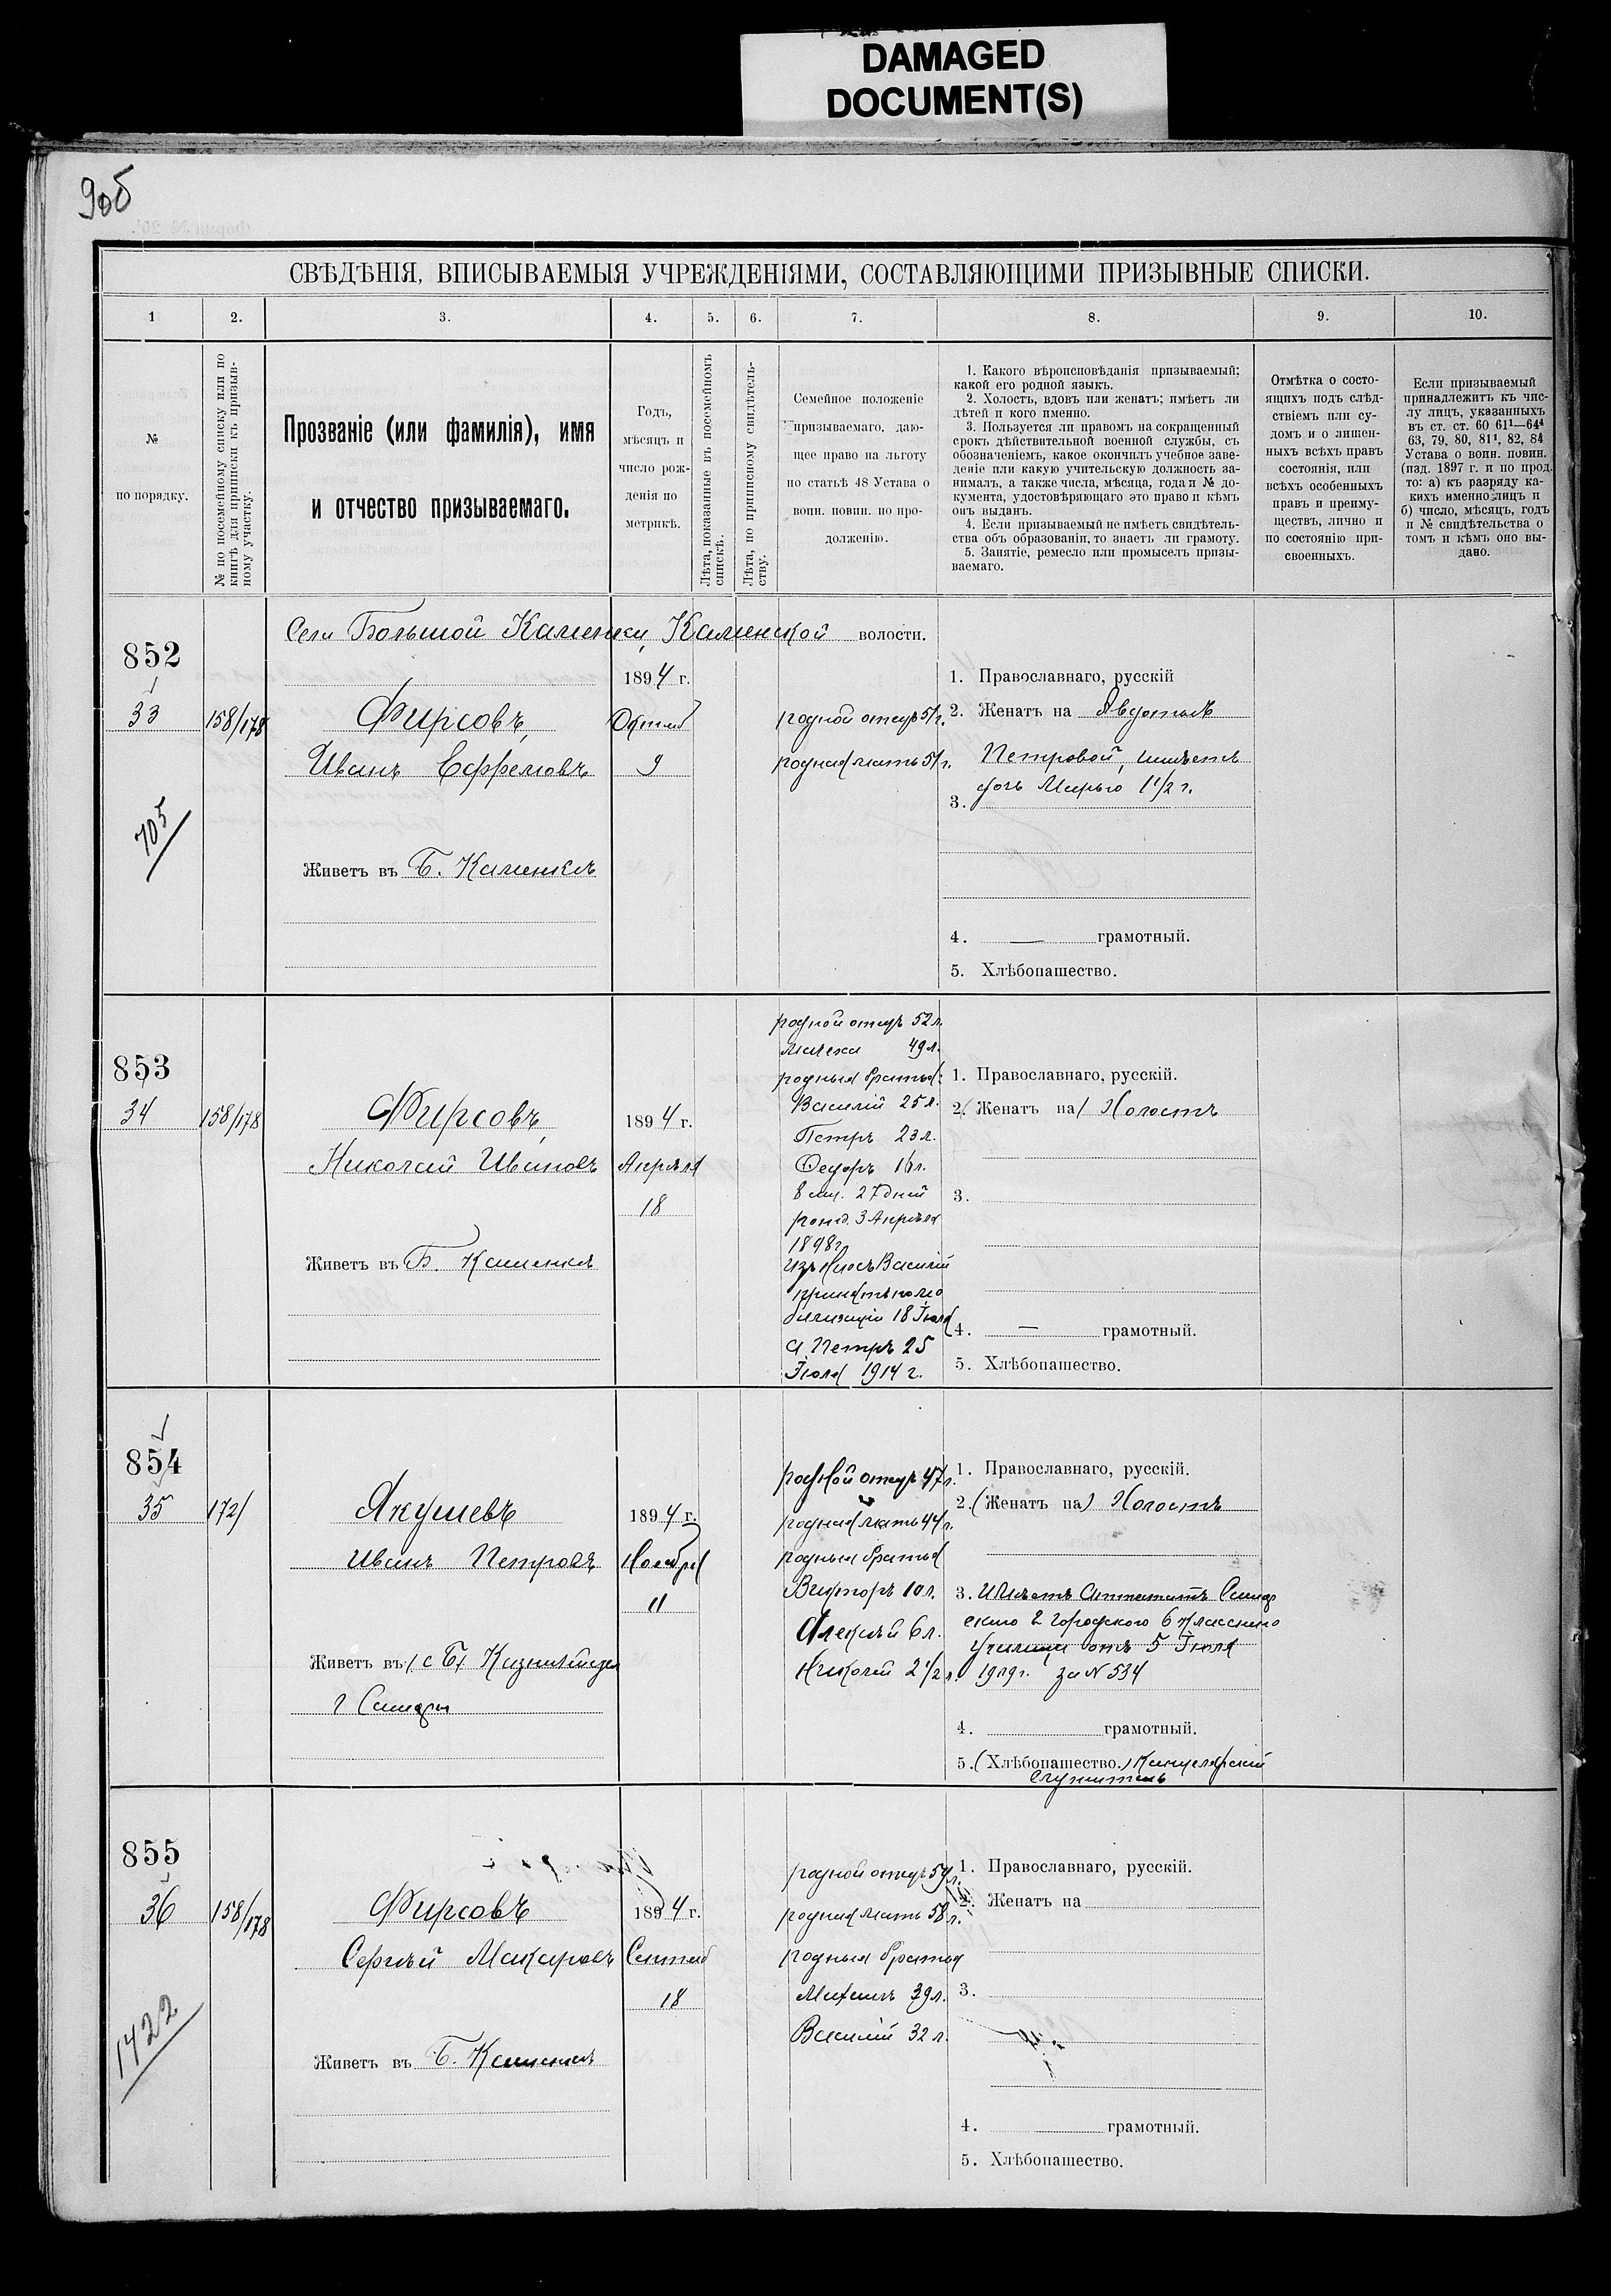 DAMAGED
DOCUMENT(S)
90б
СВѢДѢНІЯ, ВПИСЫВАЕМЫЯ УЧРЕЖДЕНІЯМИ, СОСТАВЛЯЮЩИМИ ПРИЗЫВНЫЕ СПИСКИ.
1 2. 3. 4. 5. 6. 7. 8. 9. 10.
№
по порядку.
№ по посемейному списку или по
книгѣ для приписки къ призыв-
ному участку.
Прозваніе (или фамилія), имя
и отчество призываемаго.
Годъ,
мѣсяцъ и
число рож-
денія по
метрикѣ.
Лѣта, показанные въ посемейномъ
спискѣ.
Лѣта, по приписному свидѣтель-
ству.
Семейное положеніе
призываемаго, даю-
щее право на льготу
по статьѣ 48 Устава о
воин. повин. по про-
долженію.
1. Какого вѣроисповѣданія призываемый;
какой его родной языкъ.
2. Холостъ, вдовъ или женатъ; имѣетъ ли
дѣтей и кого именно.
3. Пользуется ли правомъ на сокращенный
срокъ дѣйствительной военной службы, съ
обозначеніемъ, какое окончилъ учебное заве-
деніе или какую учительскую должность за-
нималъ, а также числа, мѣсяца, года и № до-
кумента, удостовѣряющаго это право и кѣмъ
онъ выданъ.
4. Если призываемый не имѣетъ свидѣтель-
ства объ образованіи, то знаетъ ли грамоту.
5. Занятіе, ремесло или промыселъ призы-
ваемаго.
Отмѣтка о состо-
ящихъ подъ слѣд-
ствіемъ или су-
домъ и о лишен-
ныхъ всѣхъ правъ
состоянія, или
всѣхъ особенныхъ
правъ и преиму-
ществъ, лично и
по состоянію при-
своенныхъ.
Если призываемый
принадлежитъ къ чис-
лу лицъ, указанныхъ
въ ст. ст. 60 61¹—64⁴
63, 79, 80, 81¹, 82, 84
Устава о воин. повин.
(изд. 1897 г. и по прод.
то: а) къ разряду ка-
кихъ именно лицъ и
б) число, мѣсяцъ, годъ
и № свидѣтельства о
томъ и кѣмъ оно вы-
дано.
Села Большой Каменки, Каменской волости.
852
33
158/178
705
Фирсовъ,
Иванъ Ефремовъ
Живетъ въ Б. Каменкѣ
1894 г.
9
родной отецъ 51 г.
родная мать 51 г.
1. Православнаго, русскій
2. Женатъ на Авдотьѣ
Петровой, имѣетъ
дочь Марью 1 1/2 г.
3.
4. — грамотный.
5. Хлѣбопашество.
853
34
158/178
Фирсовъ,
Николай Ивановъ
Живетъ въ Б. Каменкѣ
1894 г.
Апрѣля
18
родной отецъ 52 л.
мачеха 49 л.
родныя братья:
Василій 25 л.
Петръ 23 л.
Ѳедоръ 16 л.
8 мѣс. 27 дней
рожд. 3 Апрѣля
1898 г.
изъ нихъ Василій
принятъ по мо
билизаціи 18 Іюля
а Петръ 25
Іюля 1914 г.
1. Православнаго, русскій.
2. (Женатъ на) Холостъ
3.
4. — грамотный.
5. Хлѣбопашество.
854
35
172/
Якушевъ
Иванъ Петровъ
Живетъ въ
г Самары
1894 г.
Ноября
11
родной отецъ 47 л.
родная мать 44 г.
родныя братья
Викторъ 10 л.
Алексѣй 6 л.
Николай 2 1/2 л.
1. Православнаго, русскій.
2. (Женатъ на) Холостъ
3. Имѣетъ Аттестатъ Самар
скаго 2 городского 6 класснаго
училища отъ 5 Іюля
за N 534
4. грамотный.
5. (Хлѣбопашество.) Канцелярскій
служитель
855
36
158/178
1422
Фирсовъ
Сергѣй Макаровъ
Живетъ въ Б. Каменкѣ
1894 г.
Сентяб
18
родной отецъ 59 л.
родная мать 58 л.
родныя братья
Михаилъ 39 л.
Василій 32 л.
1. Православнаго, русскій.
2. Женатъ на
3.
4. грамотный.
5. Хлѣбопашество.